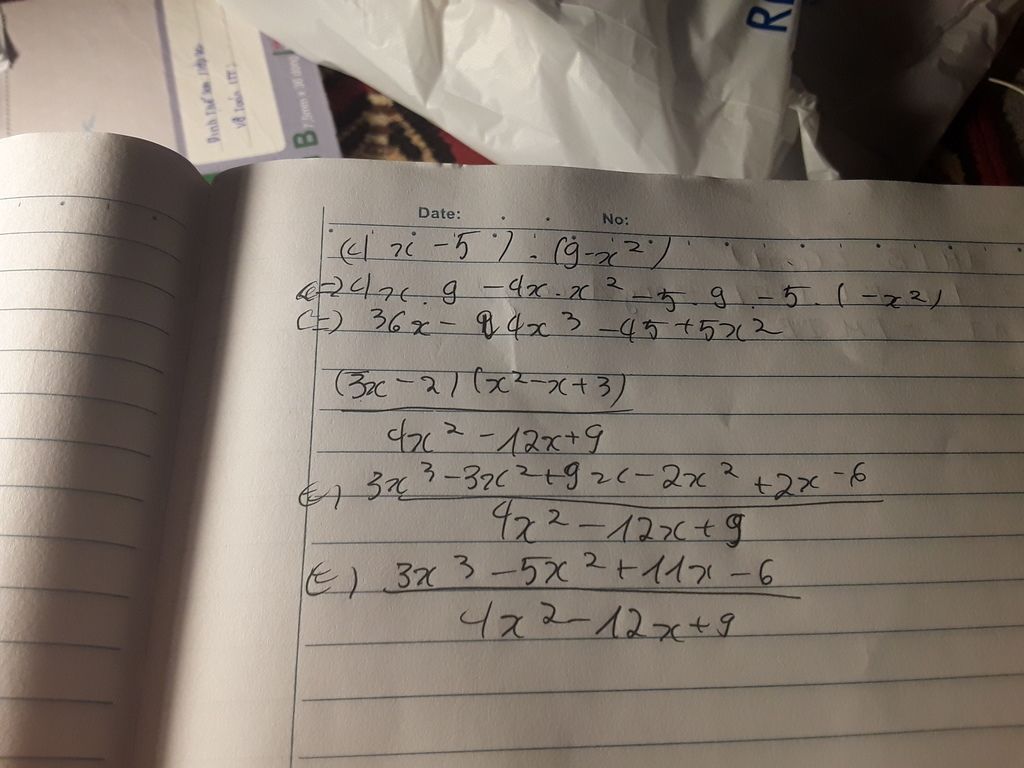 RE
B
7,9mm x 36 tờ
Date: No:
(4x - 5) . (9 - x²)
(=) 4x . 9 - 4x . x² - 5 . 9 - 5 . (-x²)
(=) 36x - 4x³ - 45 + 5x²
(3x - 2) (x² - x + 3)
4x² - 12x + 9
(=) 3x³ - 3x² + 9x - 2x² + 2x - 6
4x² - 12x + 9
(=) 3x³ - 5x² + 11x - 6
4x² - 12x + 9